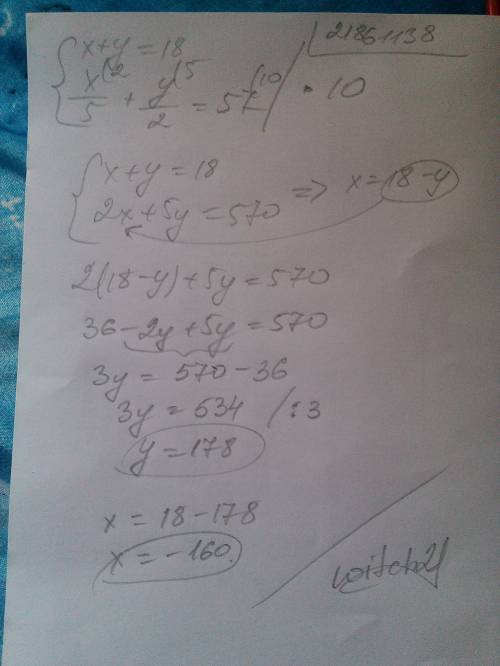 21861138
{ x+y = 18
x/5 (2 + y/2 (5 = 57 (10 / • 10
{ x+y = 18
2x+5y = 570 => x = 18-y
2(18-y)+5y = 570
36-2y+5y = 570
3y = 570-36
3y = 634 /:3
y = 178
x = 18-178
x = -160.
witch21